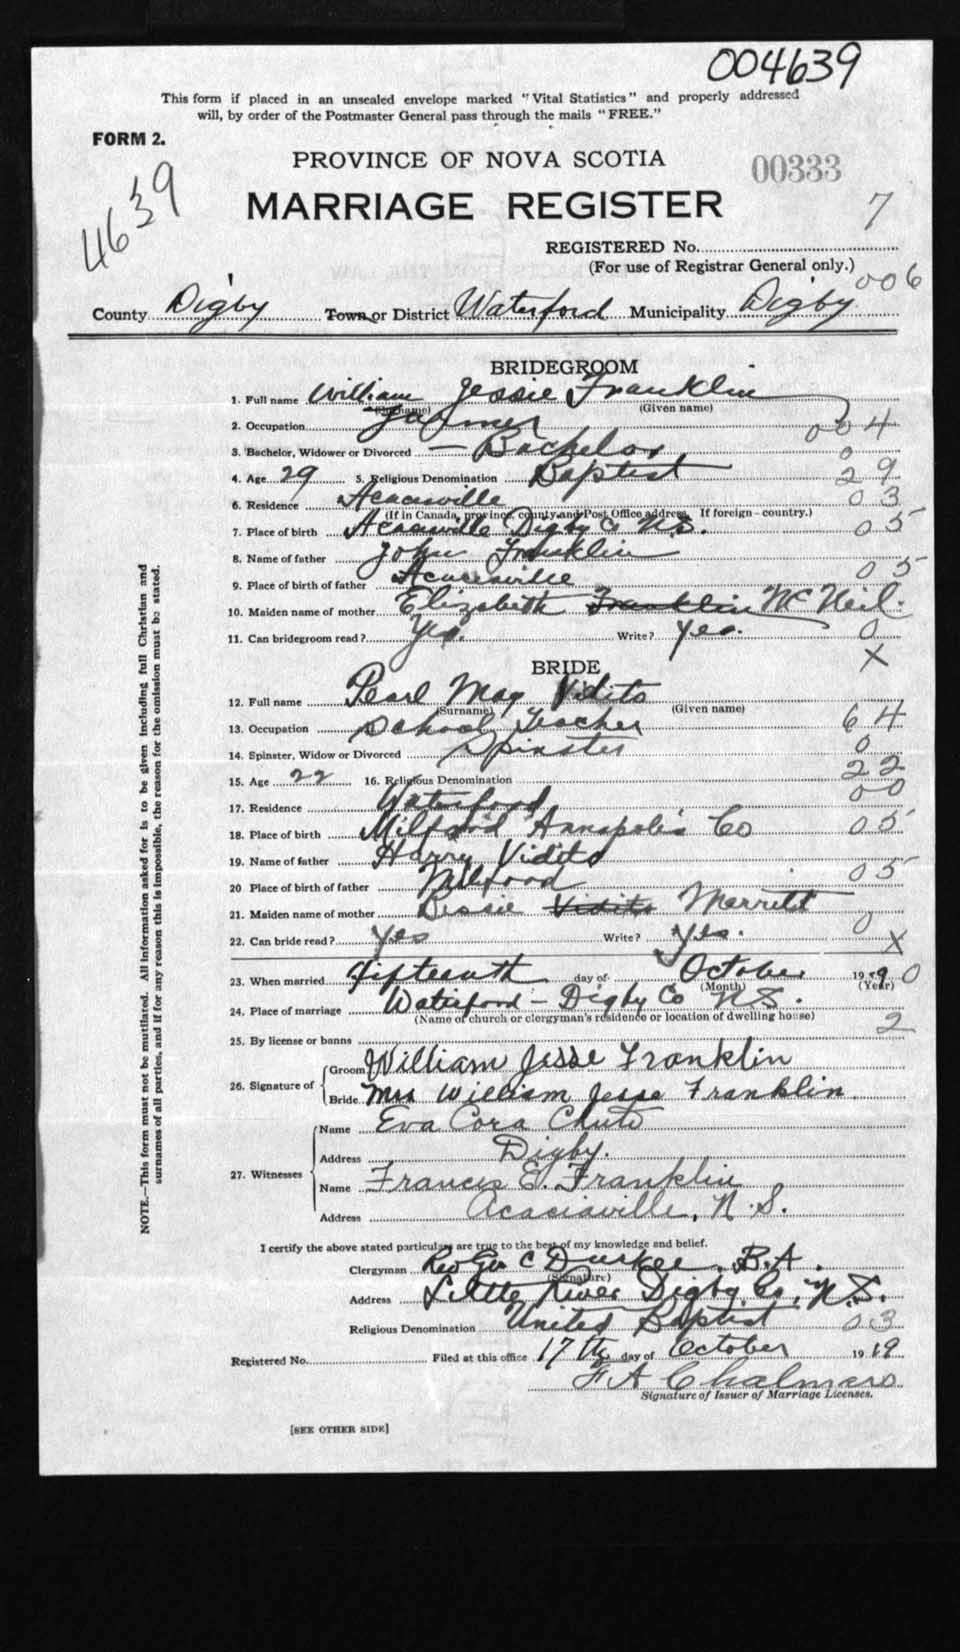 004639
This form if placed in an unsealed envelope marked "Vital Statistics" and properly addressed
will, by order of the Postmaster General pass through the mails "FREE."
FORM 2.
4639
PROVINCE OF NOVA SCOTIA
00333
MARRIAGE REGISTER
7
REGISTERED No.
(For use of Registrar General only.)
006
County Digby Town or District Waterford Municipality Digby
BRIDEGROOM
1. Full name William Jessie Franklin
(Surname) (Given name)
2. Occupation Farmer 004
3. Bachelor, Widower or Divorced — Bachelor 0
4. Age 29 5. Religious Denomination Baptist 29
6. Residence Acaciaville 03
(If in Canada, province, county and Post Office address. If foreign - country.)
7. Place of birth Acaciaville Digby Co N.S. 05
8. Name of father John Franklin
9. Place of birth of father Acaciaville 05
10. Maiden name of mother Elizabeth Franklin McNeil.
11. Can bridegroom read? Yes. Write? Yes. 0
X
BRIDE
12. Full name Pearl May Vidito
(Surname) (Given name)
13. Occupation School Teacher 64
14. Spinster, Widow or Divorced Spinster 0
15. Age 22 16. Religious Denomination 22
17. Residence Waterford 00
18. Place of birth Milford Annapolis Co 05
19. Name of father Harry Vidito
20 Place of birth of father Milford 05
21. Maiden name of mother Bessie Vidito Merritt
22. Can bride read? Yes Write? Yes. 0 X
23. When married fifteenth day of October 1919 0
(Month) (Year)
24. Place of marriage Waterford - Digby Co N.S.
(Name of church or clergyman's residence or location of dwelling house)
2
25. By license or banns
26. Signature of Groom William Jesse Franklin
Bride Mrs William Jesse Franklin
27. Witnesses
Name Eva Cora Chute
Address Digby.
Name Francis E. Franklin
Address Acaciaville, N.S.
I certify the above stated particulars are true to the best of my knowledge and belief.
Clergyman Rev Geo C Durkee, B.A.
(Signature)
Address Little River Digby Co, N.S.
Religious Denomination United Baptist 03
Registered No. Filed at this office 17th day of October 1919
F A Chalmers
Signature of Issuer of Marriage Licenses.
[SEE OTHER SIDE]
NOTE.—This form must not be mutilated. All information asked for is to be given including full Christian and
surnames of all parties, and if for any reason this is impossible, the reason for the omission must be stated.